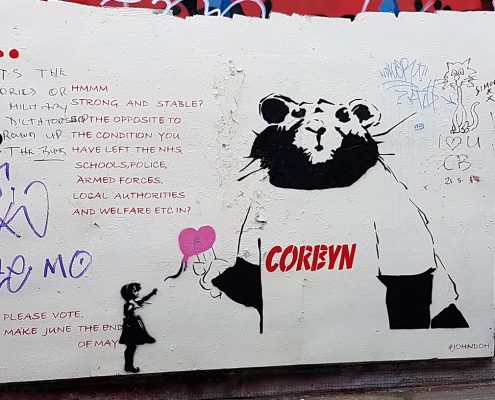 ...
T'S THE
ORIES OR
MILITARY
ROUND UP
THE
HMMM
STRONG AND STABLE?
THE OPPOSITE TO
THE CONDITION YOU
HAVE LEFT THE NHS,
SCHOOLS, POLICE,
ARMED FORCES,
LOCAL AUTHORITIES
AND WELFARE ETC IN?
MO
PLEASE VOTE.
MAKE JUNE THE END
OF MAY
CORBYN
I ♡ U
CB
#JOHNDOH